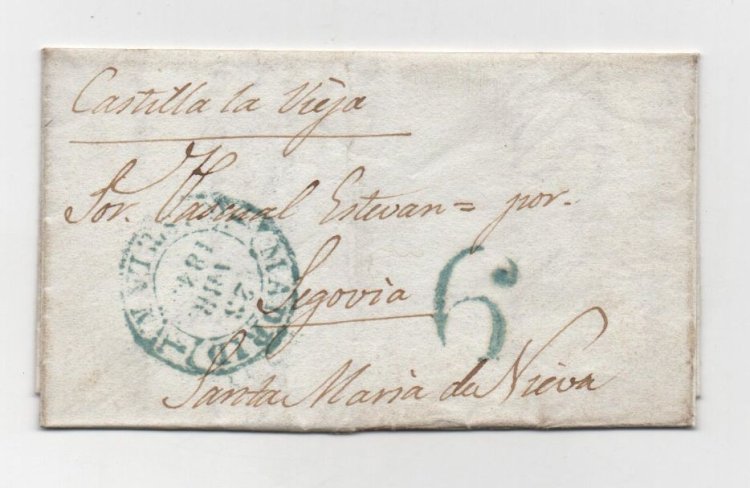 Castilla la Vieja
Sor. Pascual Estevan = por.
Segovia
6
Santa Maria de Nieva
MADRID